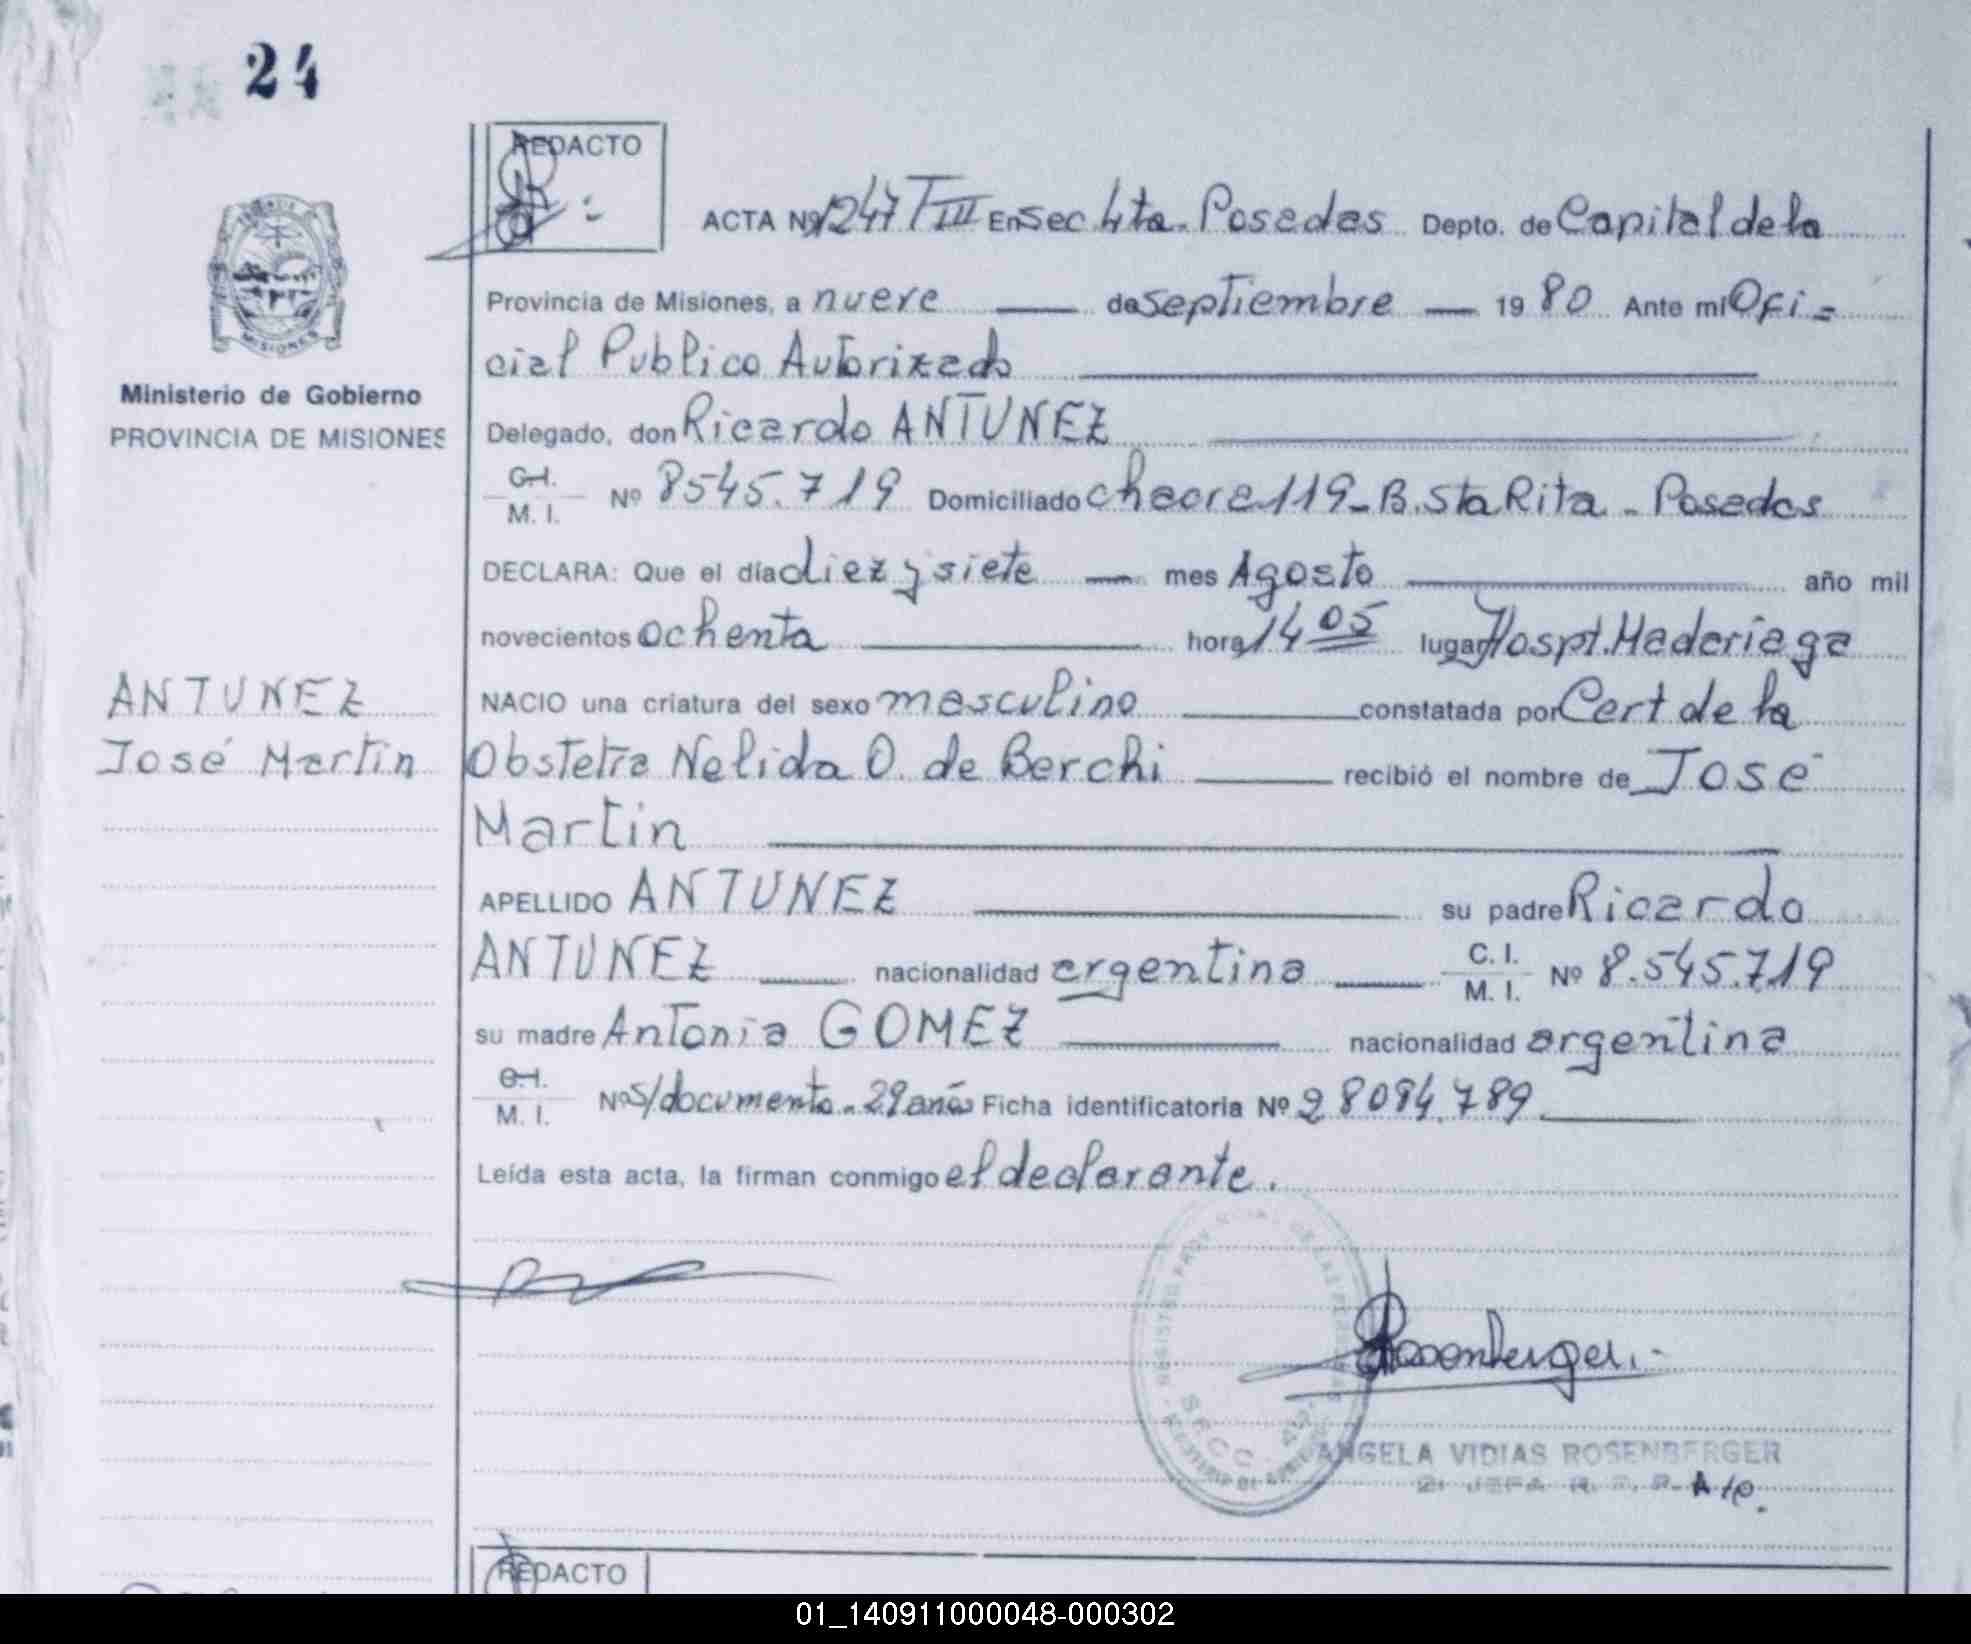 24
REDACTO
ACTA Nº 1247 T III En Sec 4ta. Posadas Depto. de Capital de la
Provincia de Misiones, a nueve de septiembre 1980 Ante mi Ofi=
cial Publico Autorizado
Ministerio de Gobierno
PROVINCIA DE MISIONES
Delegado, don Ricardo ANTUNEZ
C.I.
M. I. Nº 8545.719 Domiciliado chacra 119-B. Sta Rita - Posadas
DECLARA: Que el día diez y siete mes Agosto año mil
novecientos ochenta hora 14 05 lugar Hospt. Madariaga
ANTUNEZ
José Martin
NACIO una criatura del sexo masculino constatada por Cert de la
Obstetra Nelida O. de Berchi recibió el nombre de José
Martin
APELLIDO ANTUNEZ su padre Ricardo
ANTUNEZ nacionalidad argentina C. I.
M. I. Nº 8.545.719
su madre Antonia GOMEZ nacionalidad argentina
C.I.
M. I. Nº s/documento. 29 años Ficha identificatoria Nº 28094.789
Leída esta acta, la firman conmigo el declarante.
Rosenberger.-
SECC. 4ta
ANGELA VIDIAS ROSENBERGER
JEFA R. P. P. A/c.
REDACTO
01_140911000048-000302